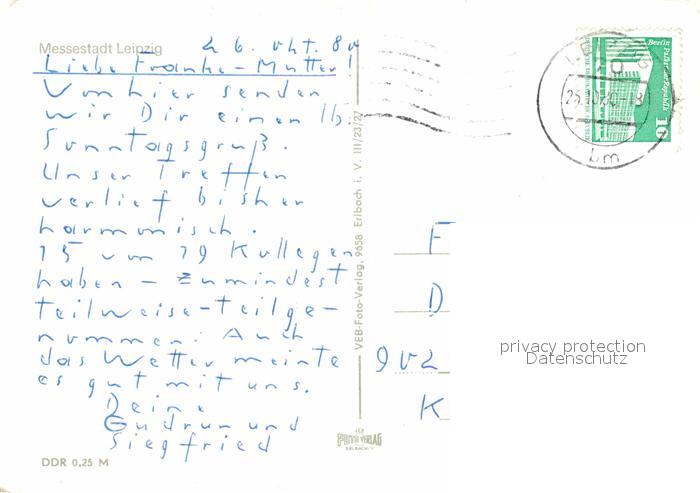 Messestadt Leipzig
26. Okt. 80
Liebe Franke-Mutter!
Von hier senden
wir Dir einen lb.
Sonntagsgruß.
Unser Treffen
verlief bisher
harmonisch.
15 von 19 Kollegen
haben - zumindest
teilweise - teilge-
nommen. Auch
das Wetter meinte
es gut mit uns.
Deine
Gudrun und
Siegfried
DDR 0,25 M
VEB-Foto-Verlag, 9658 Erlbach i. V. III/23/27
FOTO VERLAG
ERLBACH
Berlin Palast der Republik
10
25.10.80-18
F
D
902
K
privacy protection
Datenschutz